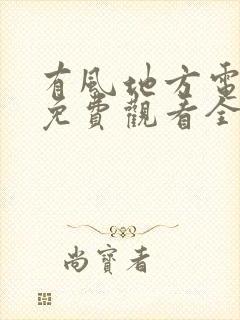 有風地方電
免費觀看全
尚寶者